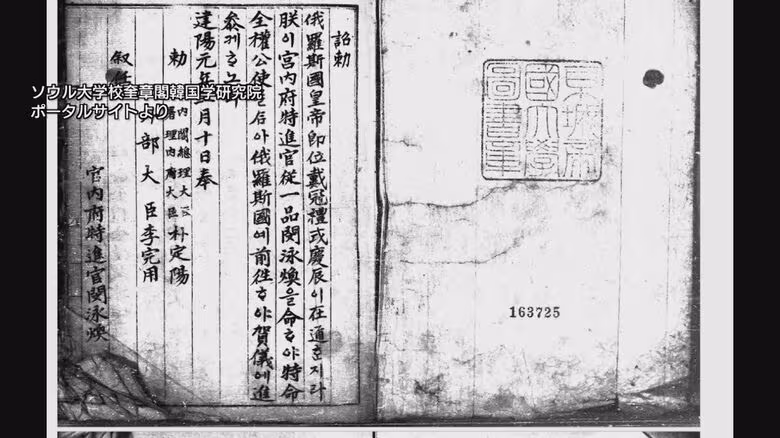 ソウル大学校奎章閣韓国学研究院
ポータルサイトより
京城帝
國大學
圖書章
163725
詔勅
俄羅斯國皇帝即位戴冠禮式慶辰이在邇ᄒᆞ지라
朕이宮内府特進官從一品閔泳煥을命ᄒᆞ야特命
全權公使를삼아俄羅斯國에前往ᄒᆞ야賀儀에進
參케ᄒᆞ노
建陽元年三月十日奉
勅
内閣總理大臣
署理内部大臣
朴定陽
部大臣李完用
叙任
宮内府特進官閔泳煥